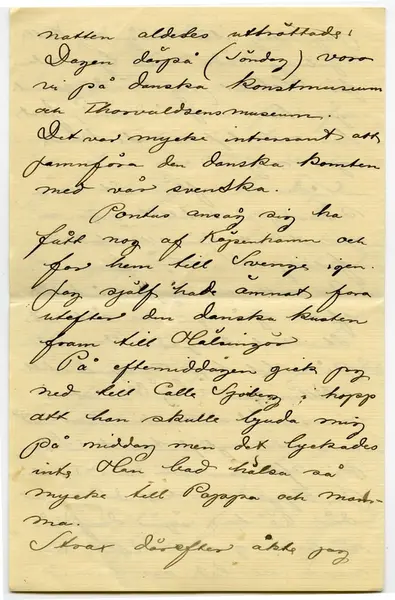 natten aldeles uttröttade!
Dagen därpå (Söndag) voro
vi på danska konstmuseum
och Thorvaldsensmuseum.
Det var mycke intressant att
jamnföra den danska konsten
med vår svenska.
Pontus ansåg sig ha
fått nog af Köpenhamn och
for hem till Sverige igen.
Jag själf hade ämnat fara
utefter den danska kusten
fram till Hälsingör
På eftemiddagen gick jag
ned till Calle Sjöberg i hopp
att han skulle bjuda mig
på middag men det lyckades
inte Han bad hälsa så
mycke till Pappa och mam-
ma.
Strax därefter åkte jag